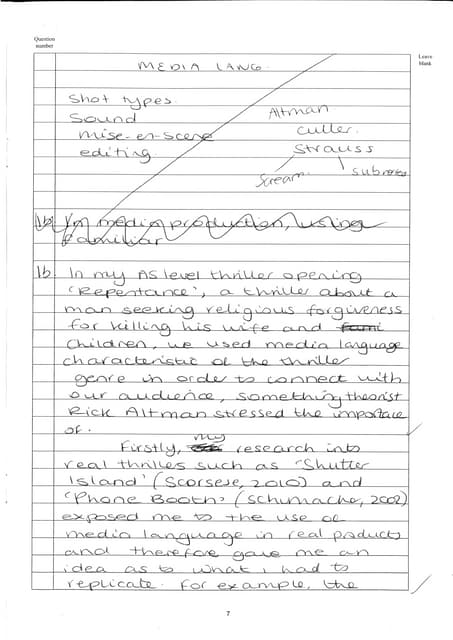 Question
number
Leave
blank
MEDIA LANG.
Shot types.
Sound
mise-en-scene
editing.
Altman
Culler.
Strauss
Scream.
1b. In media production, using
familiar
1b. In my AS level thriller opening
'Repentance', a thriller about a
man seeking religious forgiveness
for killing his wife and
children, we used media language
characteristic of the thriller
genre in order to connect with
our audience, something theorist
Rick Altman stressed the importace
of.
Firstly, my research into
real thrilles such as 'Shutter
Island' (Scorsese, 2010) and
'Phone Booth' (Schumacher, 2002)
exposed me to the use of
media language in real products
and therefore gave me an
idea as to what I had to
replicate. For example, the
7